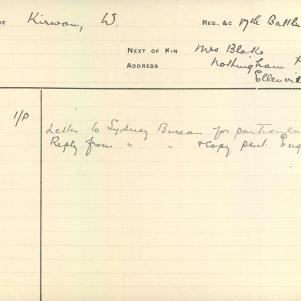 ME Kirwan, W.
REG. &C 17th Battln
NEXT OF KIN Mrs Blake
ADDRESS Nottingham
Ellenvi
1/P
Letter to Sydney Bureau for particula
Reply from " " & copy sent Enq